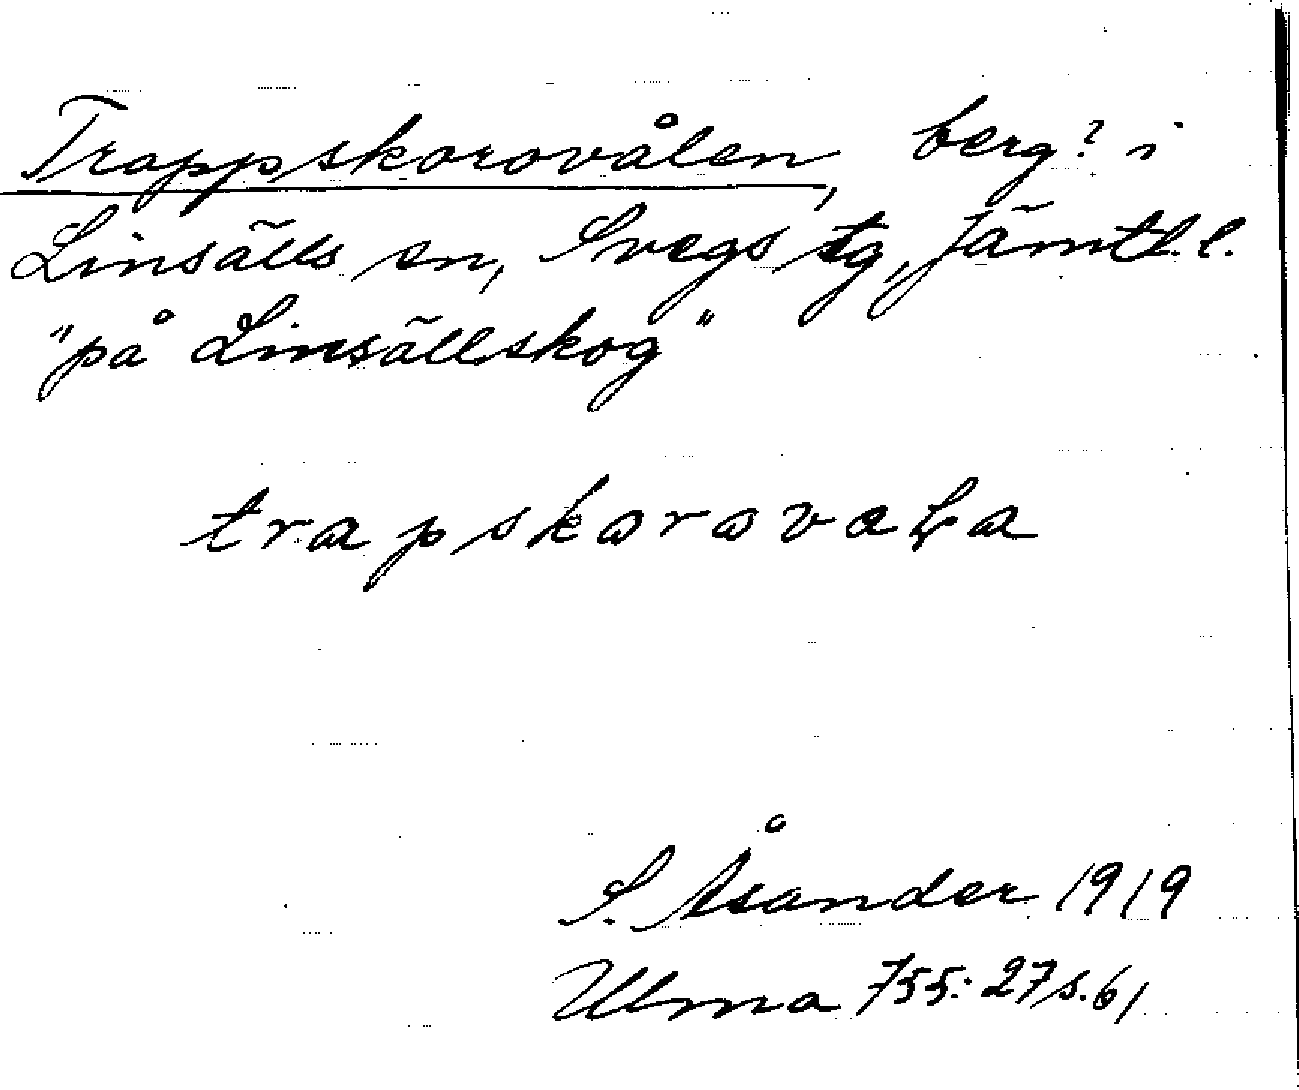 Trappskorovålen, berg? i
Linsälls sn, Svegs tg, Jämtl. l.
"på Linsällskog"
trapskorovaLa
S. Åsander 1919
Ulma 755:27 s. 61